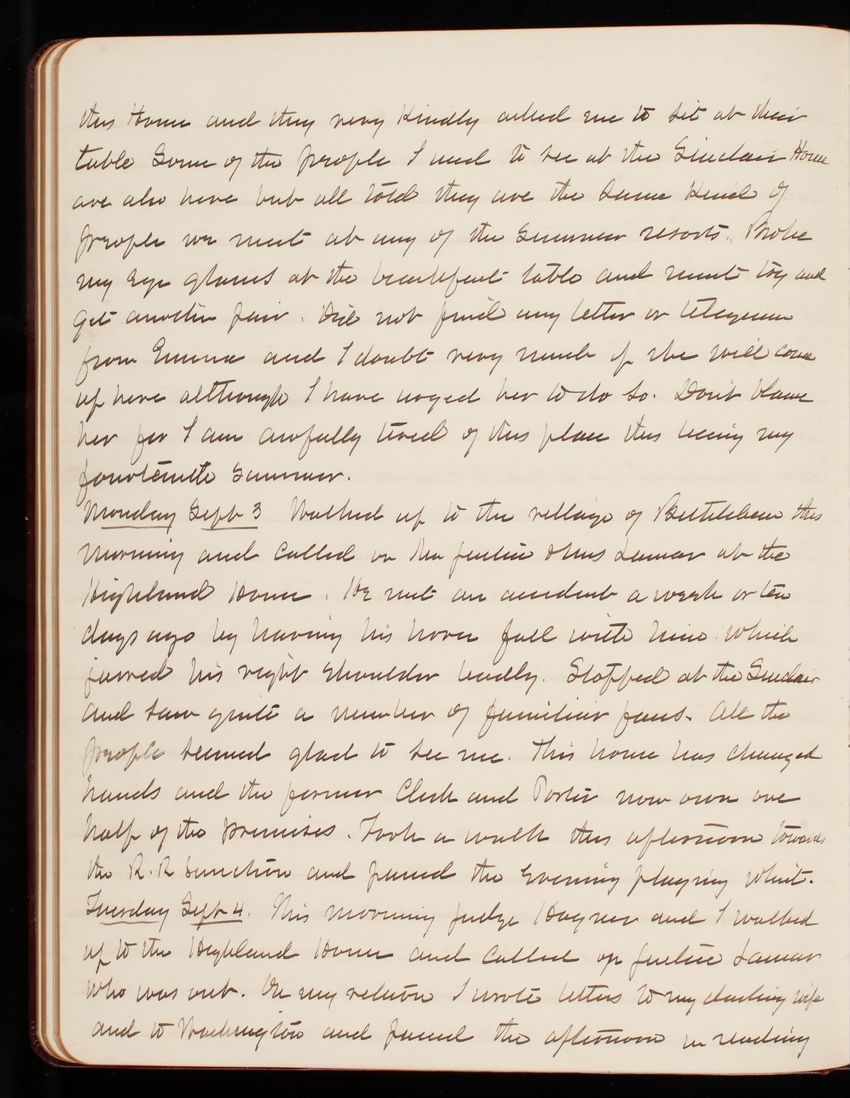 this House and they very kindly asked me to sit at their
table Some of the people I used to see at the Sinclair House
are also here but all told they are the same kind of
people we meet at any of the summer resorts. Broke
my eye glasses at the breakfast table and must try and
get another pair. Did not find any letter or telegram
from Emma and I doubt very much if she will come
up here although I have urged her to do so. Don't blame
her for I am awfully tired of this place this being my
fourteenth summer.
Monday Sept 3 Walked up to the village of Bethlehem this
morning and called on Mr Justice & Mrs Lamar at the
Highland House. He met an accident a week or ten
days ago by having his horse fall with him which
jarred his right shoulder badly. Stopped at the Sinclair
and saw quite a number of familiar faces. All the
people seemed glad to see me. This house has changed
hands and the former Clerk and Porter now own one
half of the premises. Took a walk this afternoon towards
the R.R Junction and passed the evening playing whist.
Tuesday Sept 4. This morning Judge Hagner and I walked
up to the Highland House and called on Justice Lamar
who was out. On my return I wrote letters to my darling wife
and to Washington and passed the afternoon in reading